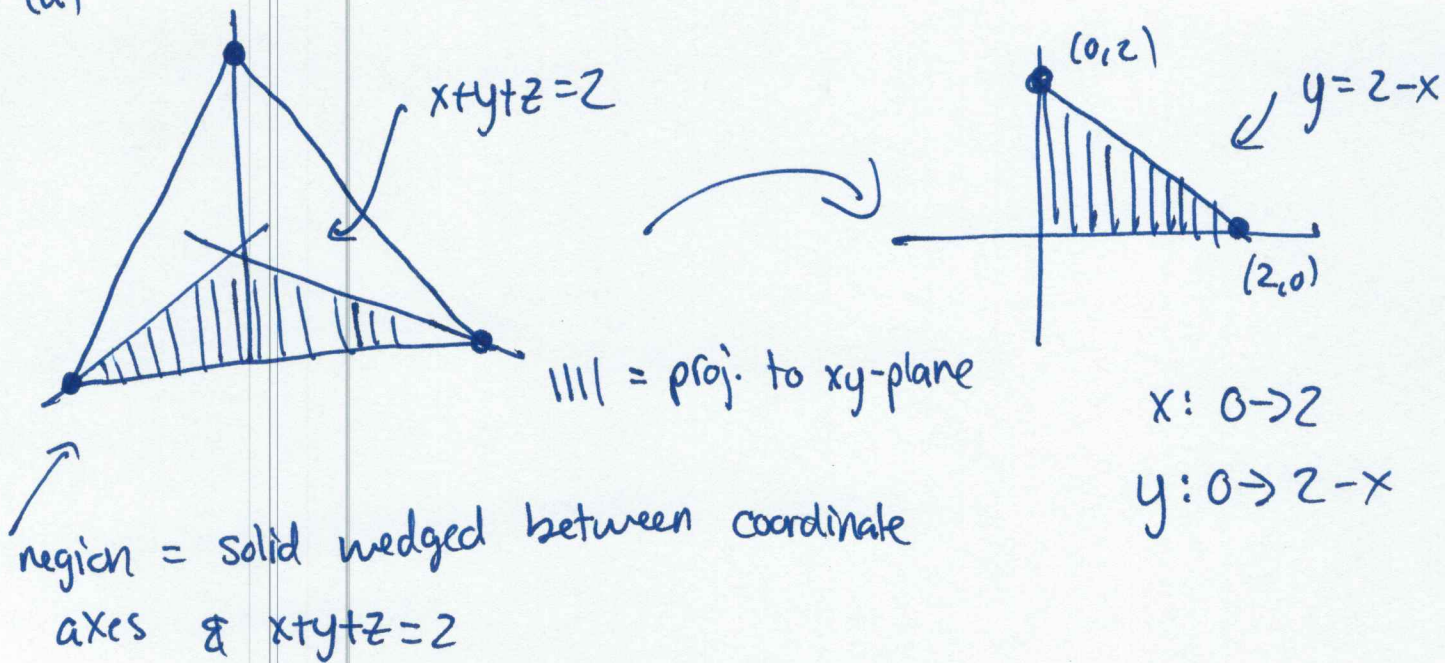 (a)
x+y+z=2
(0,2)
y=2-x
(2,0)
|||| = proj. to xy-plane
x: 0->2
y: 0-> 2-x
region = solid wedged between coordinate
axes & x+y+z=2